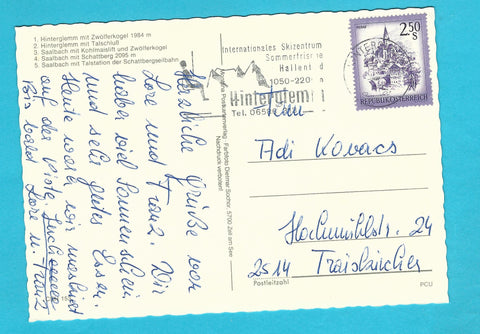 1. Hinterglemm mit Zwölferkogel 1984 m
2. Hinterglemm mit Talschluß
3. Saalbach mit Kohlmaislift und Zwölferkogel
4. Saalbach mit Schattberg 2095 m
5. Saalbach mit Talstation der Schattbergseilbahn
Herzliche Grüße von
Lore und Franz. Wir
haben viel Sonnenschein
und sehr gutes Essen.
Heute waren wir
auf der Piste.
Bis bald Lore u. Franz
Postkartenverlag · Farbfoto Dietmar Sochor, 5700 Zell am See
Nachdruck verboten!
Internationales Skizentrum
Sommerfrische
Hallenb
1050-220
Hinterglemm
Tel. 065
2.50
S
REPUBLIK ÖSTERREICH
Frau
Adi Kovacs
Hochmühlstr. 24
2514 Traiskirchen
Postleitzahl
PCU